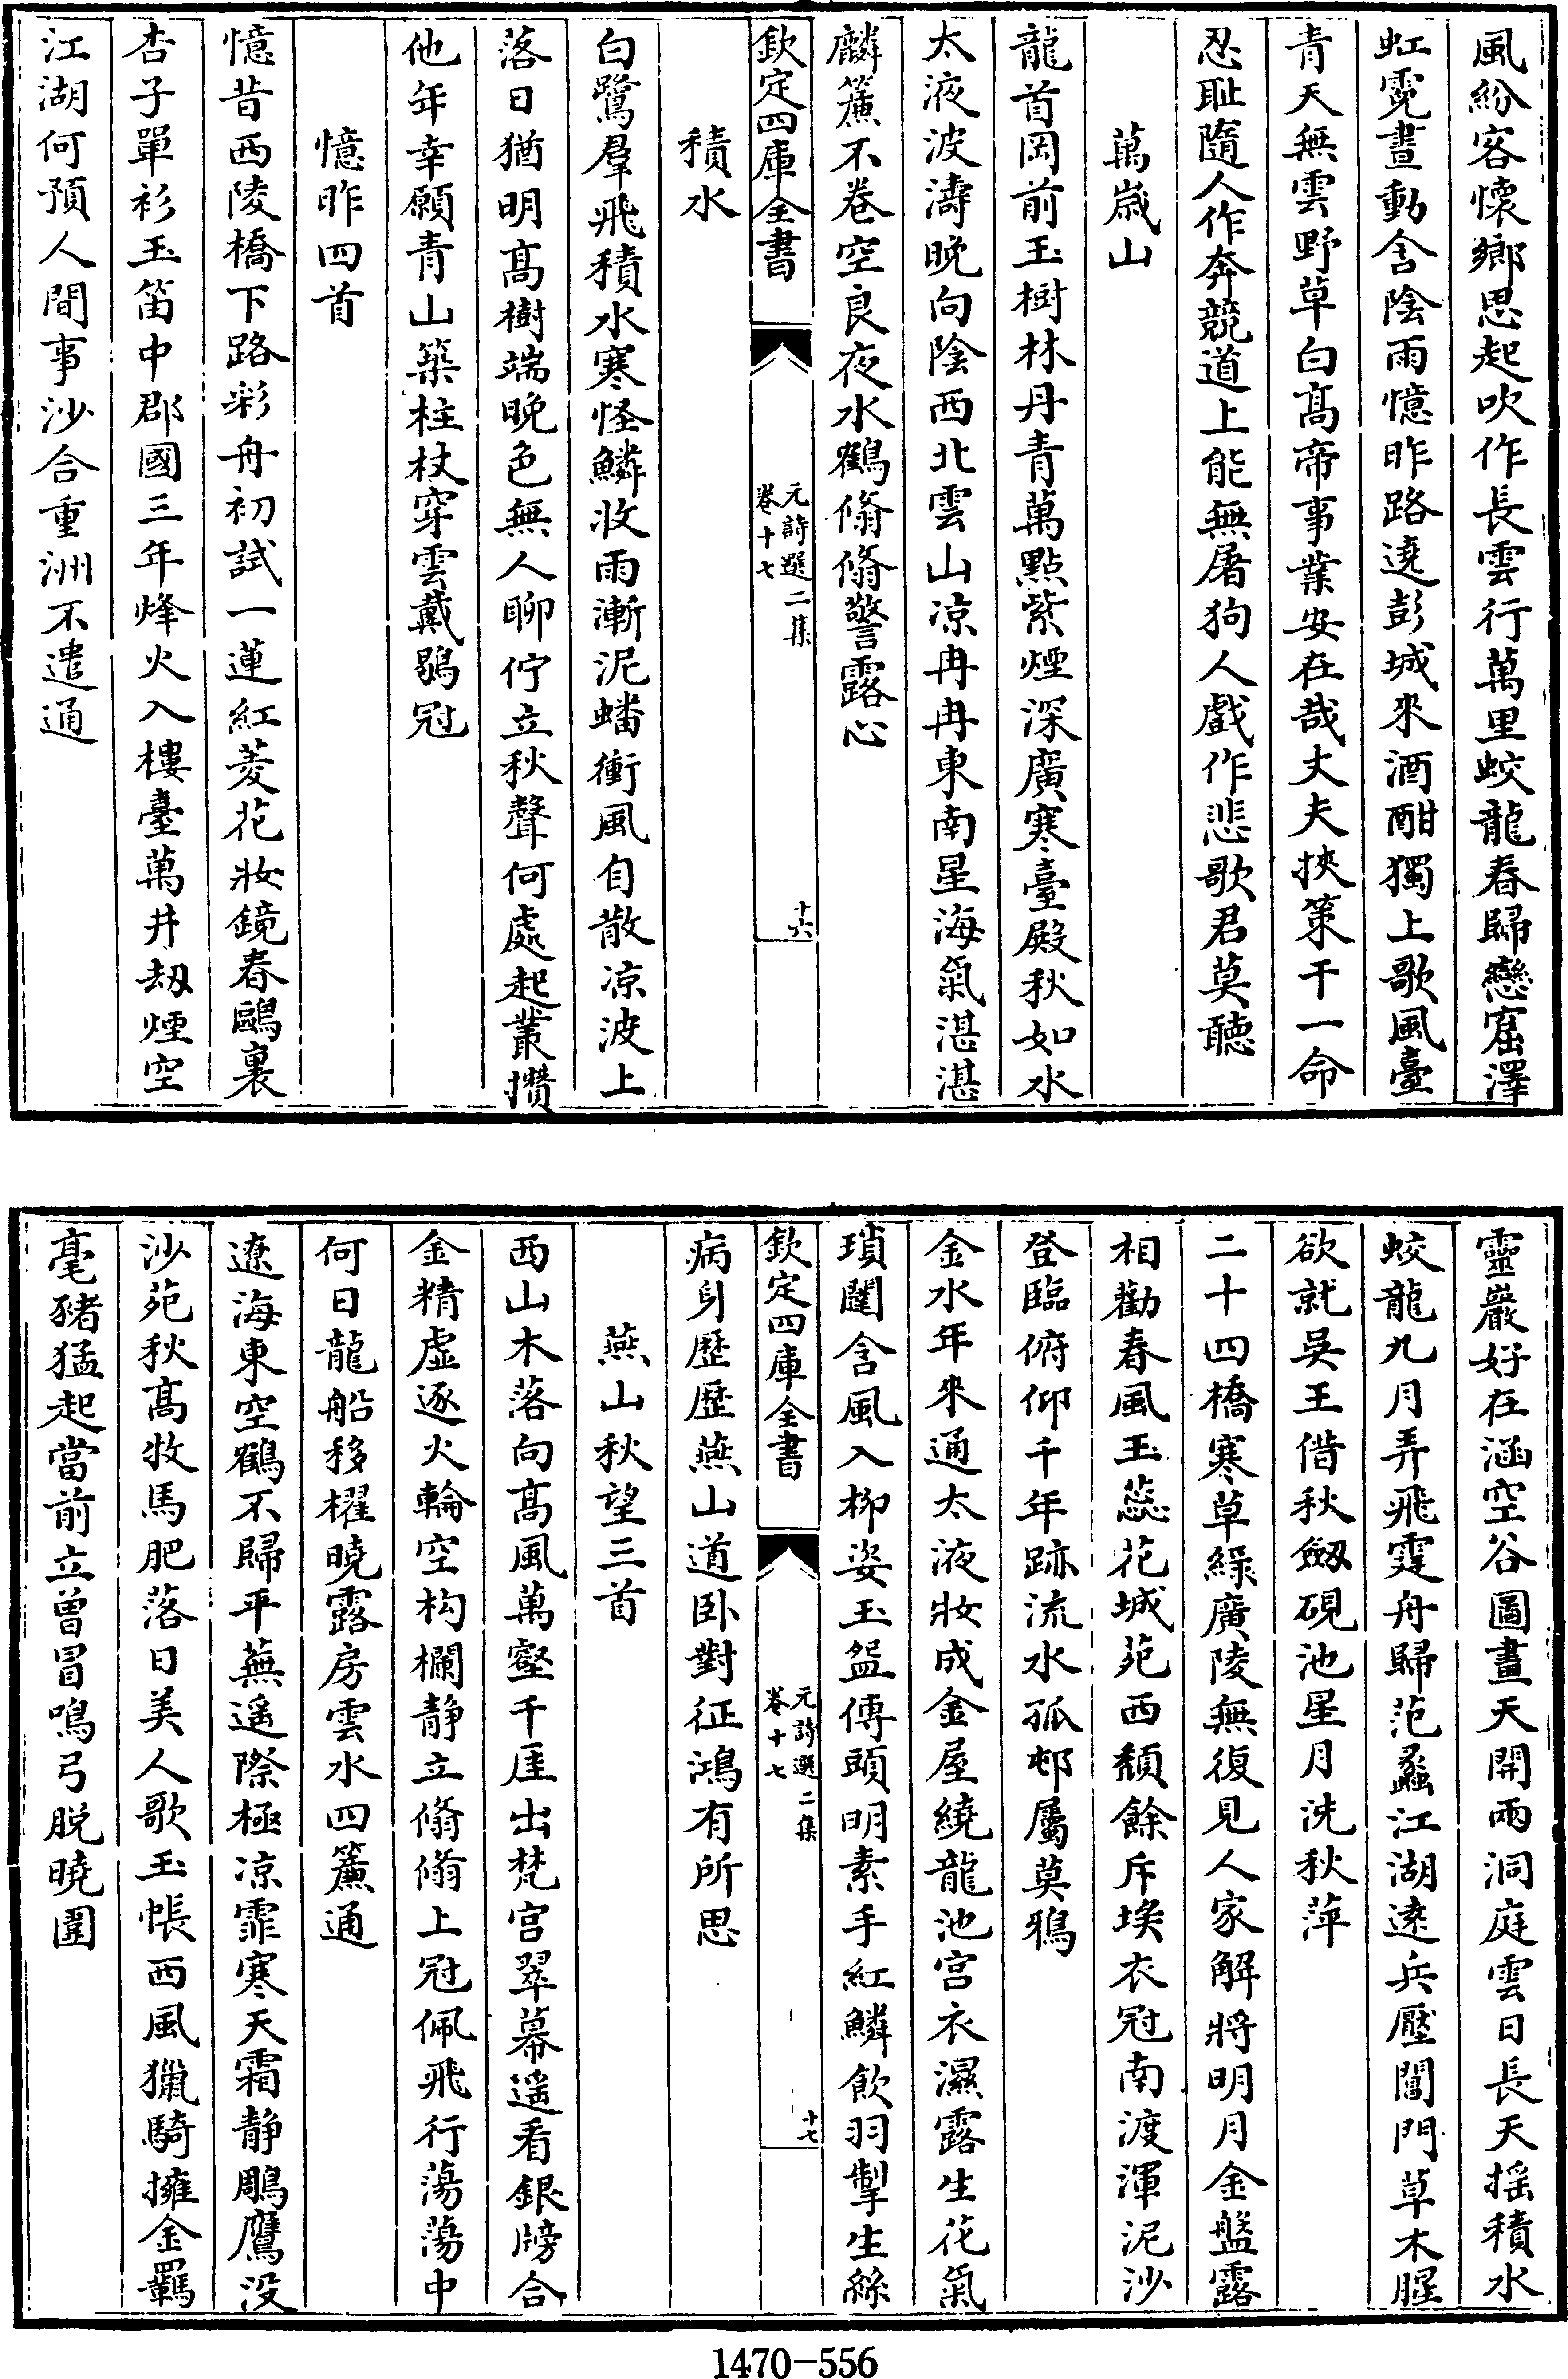 風紛客懷鄉思起吹作長雲行萬里蛟龍春歸戀窟澤
虹霓晝動含陰雨憶昨路遶彭城來酒酣獨上歌風臺
青天無雲野草白髙帝事業安在哉丈夫挾策干一命
忍耻隨人作奔競道上能無屠狗人戲作悲歌君莫聽
萬歳山
龍首岡前玉樹林丹青萬點紫煙深廣寒臺殿秋如水
太液波濤晚向陰西北雲山凉冉冉東南星海氣湛湛
麟簾不卷空良夜水鶴翛翛警露心
欽定四庫全書
元詩選二集
卷十七
十六
積水
白鷺羣飛積水寒怪鱗收雨漸泥蟠衝風自散凉波上
落日猶明髙樹端晚色無人聊佇立秋聲何處起叢攢
他年幸願青山築柱杖穿雲戴鶡冠
憶昨四首
憶昔西陵橋下路彩舟初試一蓮紅菱花妝鏡春鷗裏
杏子單衫玉笛中郡國三年烽火入樓臺萬井刼煙空
江湖何預人間事沙合重洲不遣通
靈巖好在涵空谷圖畫天開兩洞庭雲日長天揺積水
蛟龍九月弄飛霆舟歸范蠡江湖逺兵壓閶門草木腥
欲就吳王借秋劔硯池星月洗秋萍
二十四橋寒草綠廣陵無復見人家解將明月金盤露
相勸春風玉蕊花城苑西頽餘斥堠衣冠南渡渾泥沙
登臨俯仰千年跡流水孤邨屬莫鴉
金水年來通太液妝成金屋繞龍池宫衣濕露生花氣
瑣闥含風入栁姿玉盌傳頭明素手紅鱗飲羽掣生絲
欽定四庫全書
元詩選二集
卷十七
十七
病身歴歴燕山道卧對征鴻有所思
燕山秋望三首
西山木落向髙風萬壑千厓出梵宫翠幕遥看銀牓合
金精虚逐火輪空构欄静立翛翛上冠佩飛行蕩蕩中
何日龍船移櫂曉露房雲水四簾通
遼海東空鶴不歸平蕪遥際極凉霏寒天霜静鵰鷹没
沙苑秋髙牧馬肥落日美人歌玉帳西風獵騎擁金羈
毫豬猛起當前立曽冒鳴弓脱曉圍
1470-556